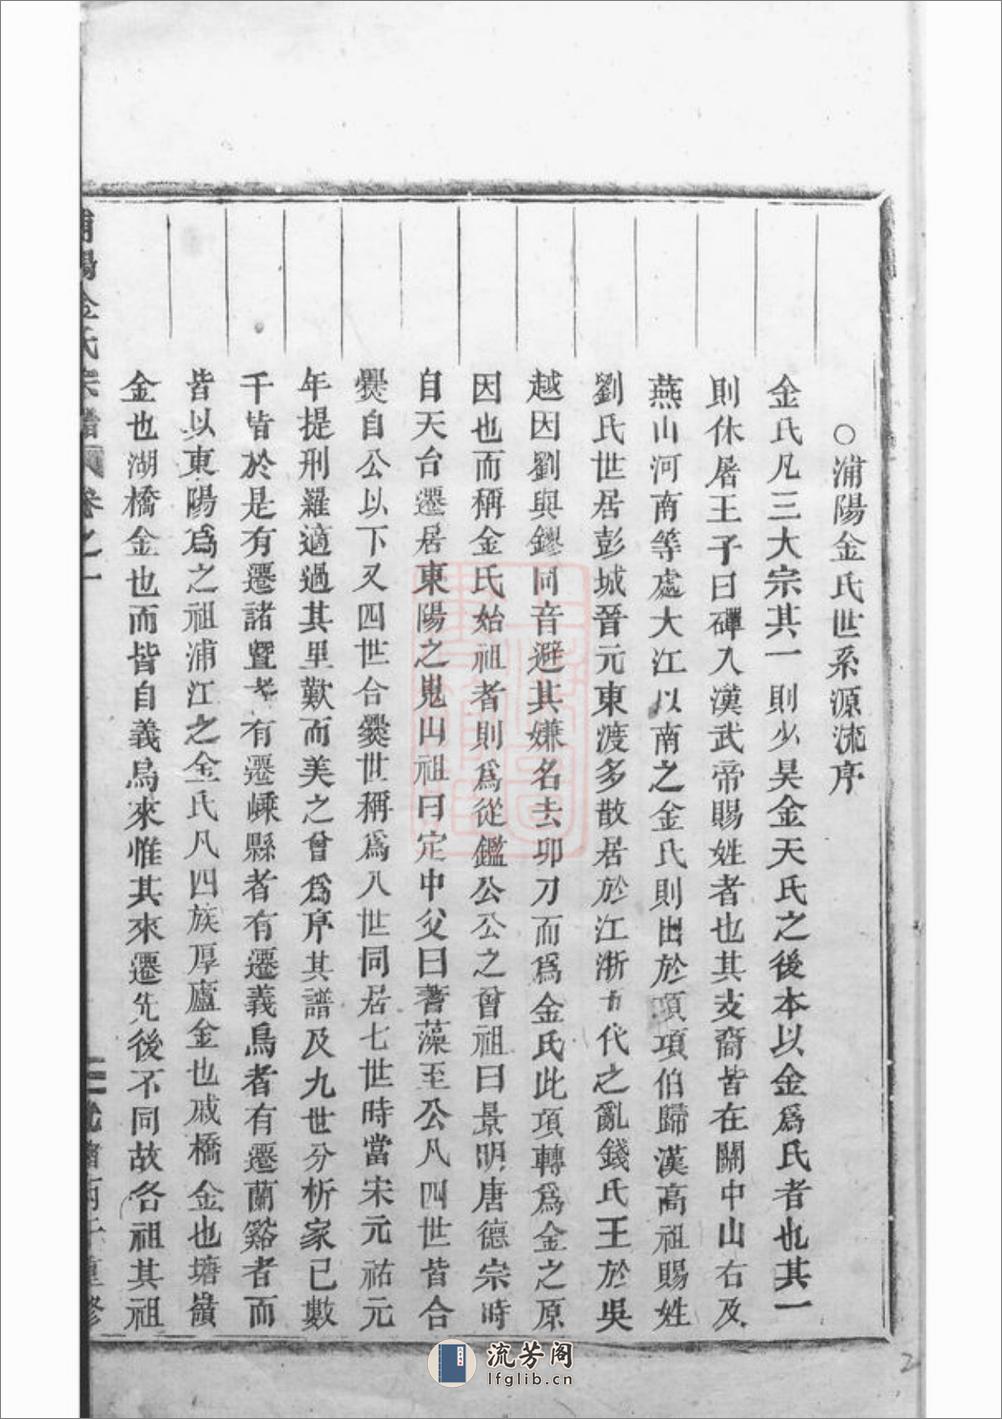 ○浦陽金氏世系源流序
金氏凡三大宗其一則少昊金天氏之後本以金爲氏者也其一
則休屠王子日磾入漢武帝賜姓者也其支裔皆在關中山右及
燕山河南等處大江以南之金氏則出於項項伯歸漢高祖賜姓
劉氏世居彭城晉元東渡多散居於江浙五代之亂錢氏王於吳
越因劉與鏐同音避其嫌名去卯刀而爲金氏此項轉爲金之原
因也而稱金氏始祖者則爲從鑑公公之曾祖曰景明唐德宗時
自天台遷居東陽之鬼山祖曰定中父曰著藻至公凡四世皆合
爨自公以下又四世合爨世稱爲八世同居七世時當宋元祐元
年提刑羅適過其里歎而美之曾爲序其譜及九世分析家已數
千皆於是有遷諸暨者有遷嵊縣者有遷義烏者有遷蘭谿者而
皆以東陽爲之祖浦江之金氏凡四族厚廬金也戚橋金也塘嶺
金也湖橋金也而皆自義烏來惟其來遷先後不同故各祖其祖
浦陽金氏宗譜 卷之一 丙子重修
流芳阁
lfglib.cn
2